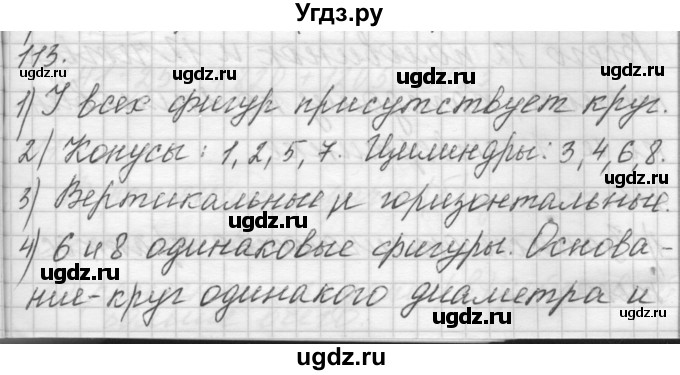 Угдз.ру
113.
1) У всех фигур присутствует круг.
2) Конусы: 1, 2, 5, 7. Цилиндры: 3, 4, 6, 8.
3) Вертикальные и горизонтальные.
4) 6 и 8 одинаковые фигуры. Основа-
ние-круг одинакого диаметра и
ugdz.ru
ugdz.ru
ugdz.ru
ugdz.ru
ugdz.ru
ugdz.ru
ugdz.ru
ugdz.ru
ugdz.ru